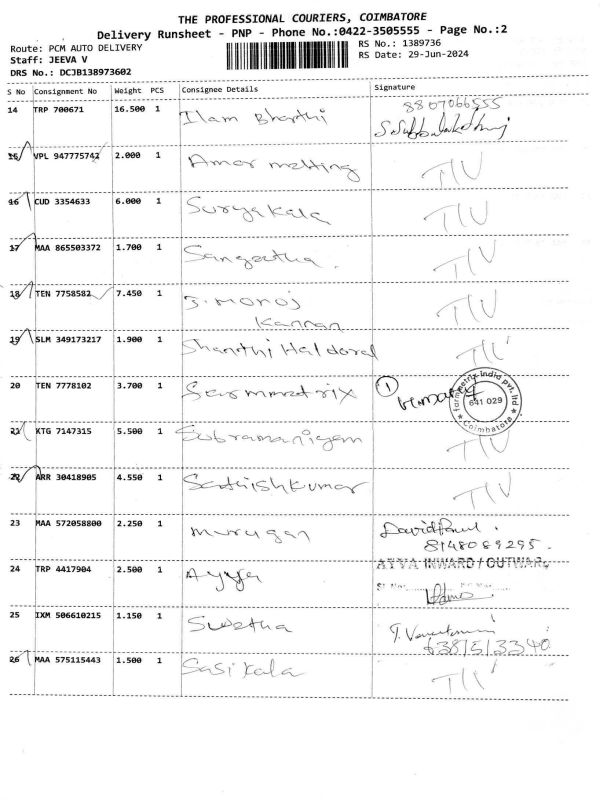 THE PROFESSIONAL COURIERS, COIMBATORE
Delivery Runsheet - PNP - Phone No.:0422-3505555 - Page No.:2
Route: PCM AUTO DELIVERY
RS No.: 1389736
Staff: JEEVA V
RS Date: 29-Jun-2024
DRS No.: DCJB138973602
S No Consignment No Weight PCS Consignee Details Signature
14 TRP 700671 16.500 1 Ilam Bharthi 8807066555
15 VPL 947775742 2.000 1 Amar melting TIU
16 CUD 3354633 6.000 1 Suryakala TIU
17 MAA 865503372 1.700 1 Sangeetha. TIU
18 TEN 7758582 7.450 1 J. Monoj TIU
Kannan
19 SLM 349173217 1.900 1 Shanthi Haldoral TIU
20 TEN 7778102 3.700 1 Sarmmatrix 1
farmmatrix india pvt. ltd
641 029
Coimbatore
21 KTG 7147315 5.500 1 Subramaniyam TIU
22 ARR 30418905 4.550 1 Sathishkumar TIU
23 MAA 572058800 2.250 1 murugan David Paul.
8148089295.
24 TRP 4417904 2.500 1 Ayya AYYA INWARD / OUTWARD
25 IXM 506610215 1.150 1 Swetha
6381513340
26 MAA 575115443 1.500 1 Sasikala TIU